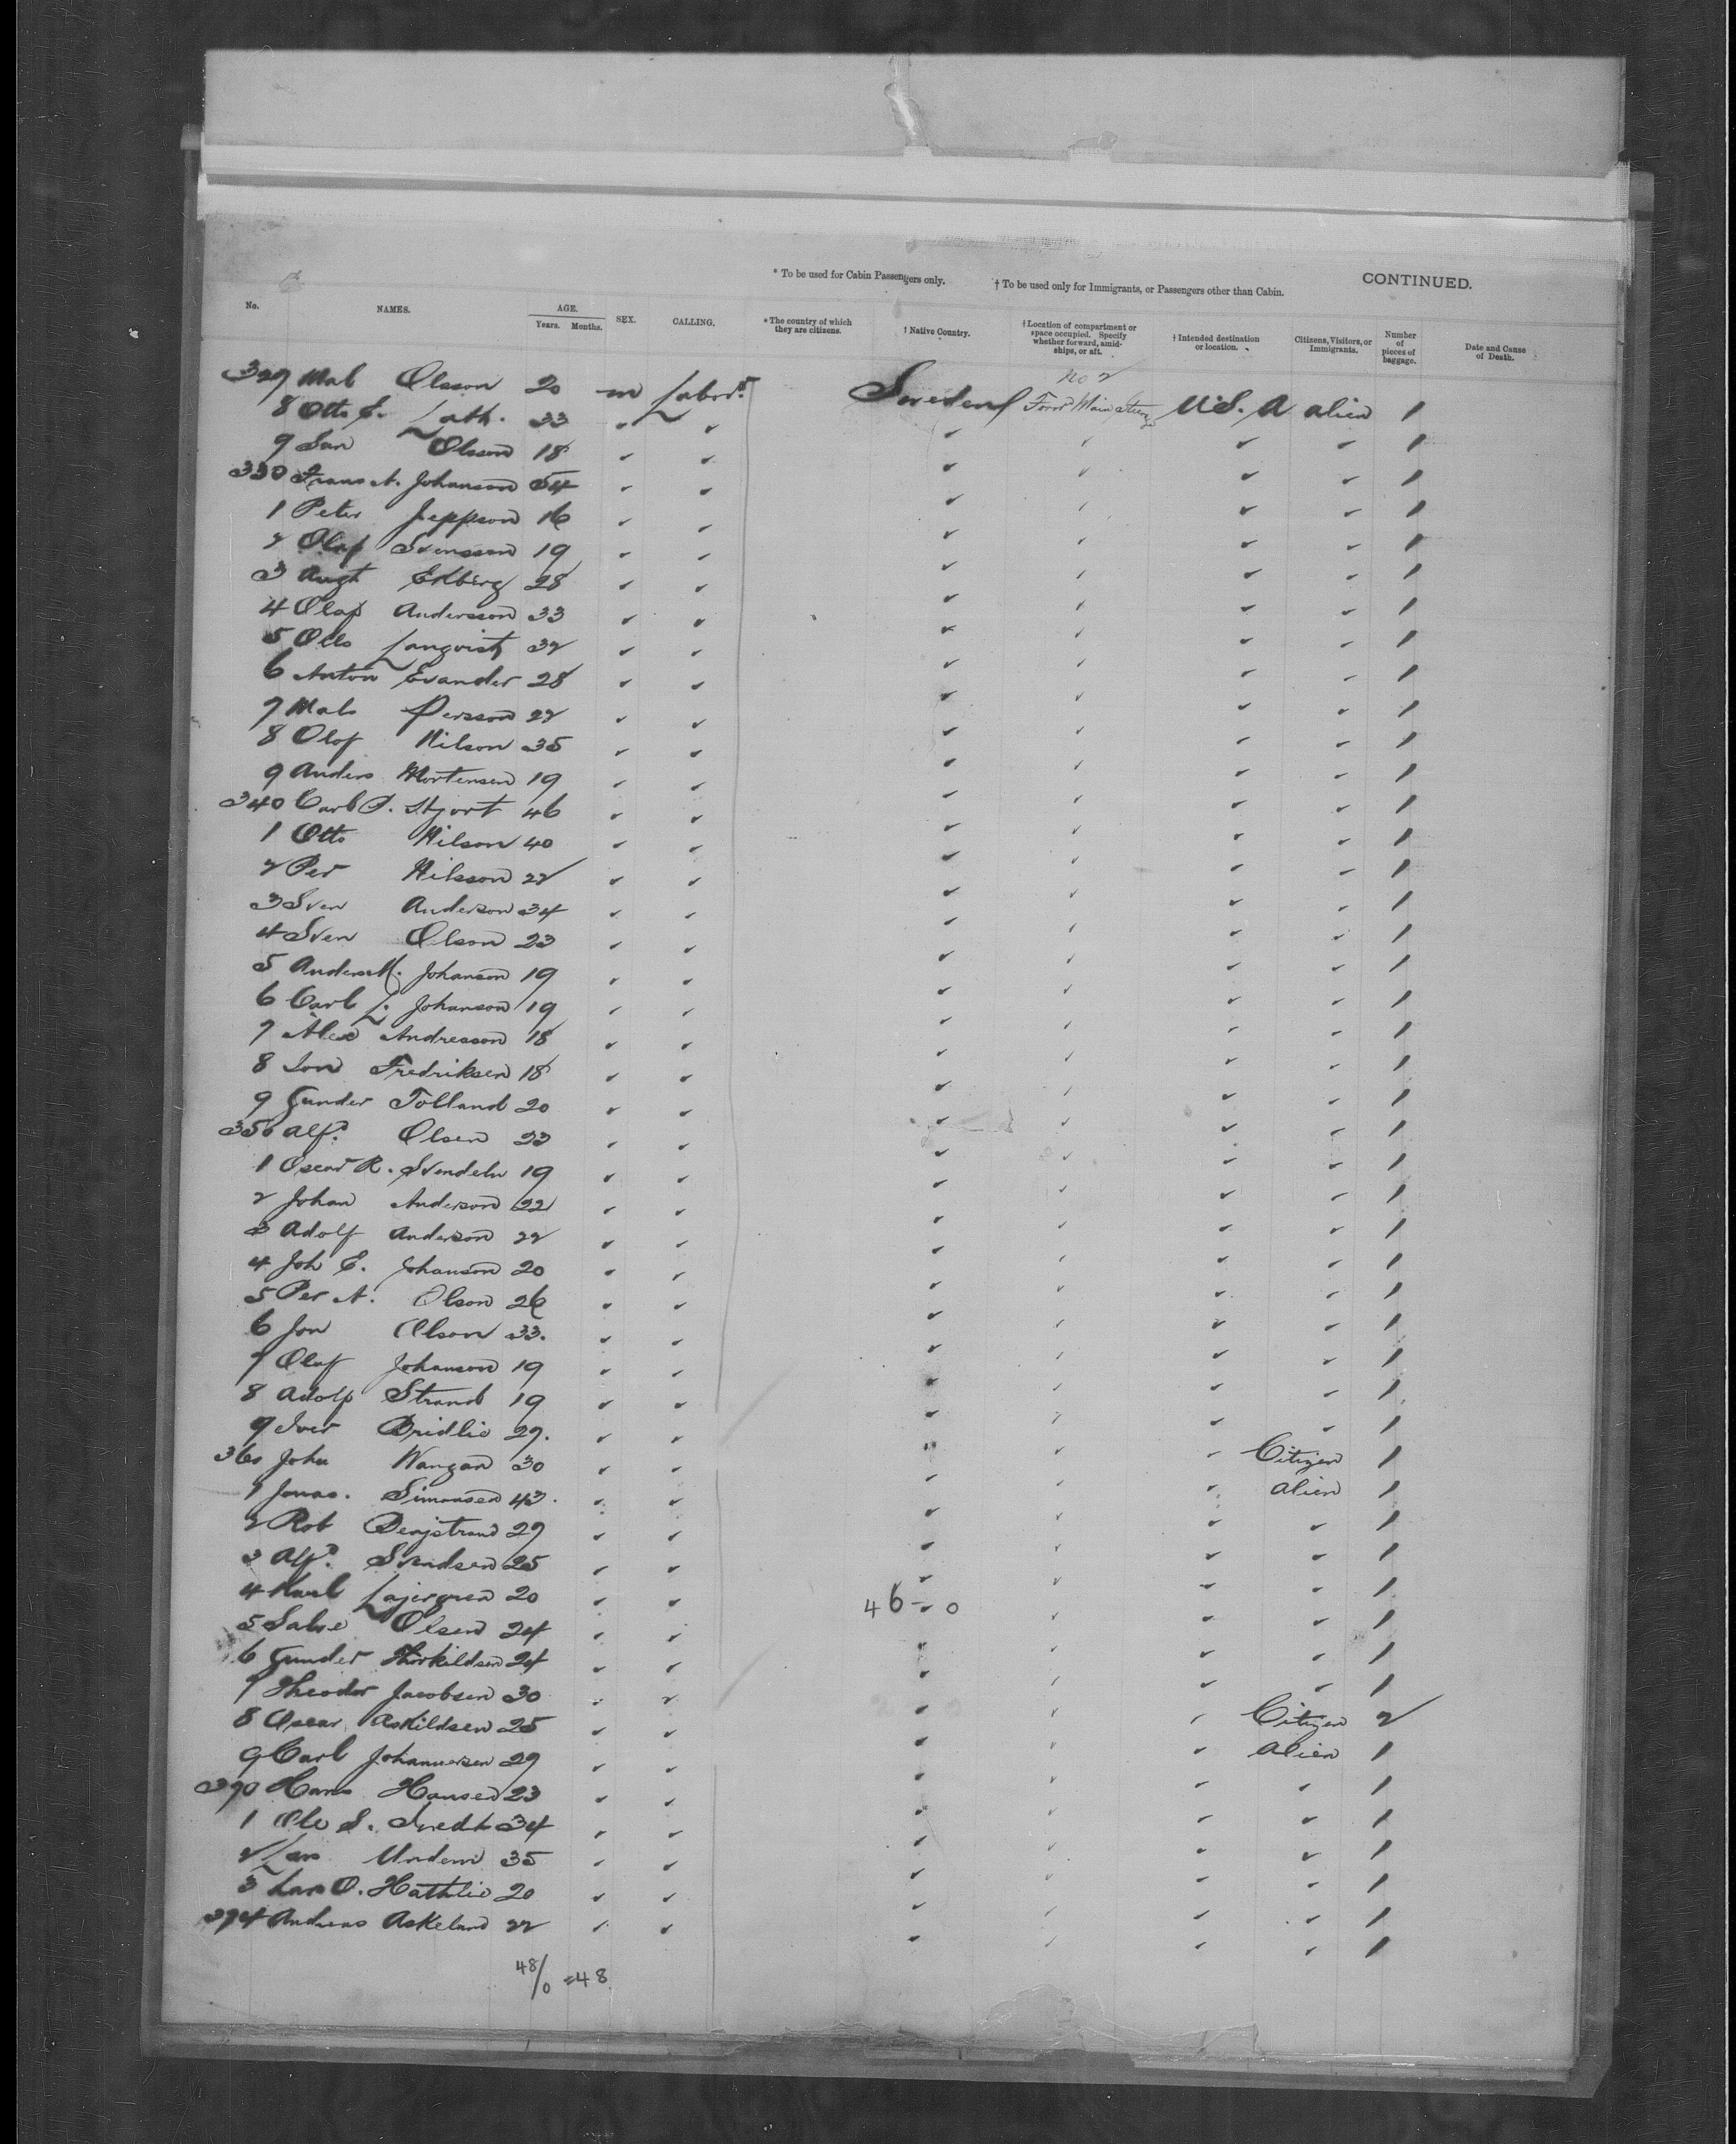 * To be used for Cabin Passengers only. † To be used only for Immigrants, or Passengers other than Cabin. CONTINUED.
No. NAMES. AGE. Years. Months. SEX. CALLING. * The country of which they are citizens. † Native Country. † Location of compartment or space occupied. Specify whether forward, amidships, or aft. † Intended destination or location. Citizens, Visitors, or Immigrants. Number of pieces of baggage. Date and Cause of Death.
No 2
327 Mals Olsson 20 m Labors Sweden Forwd Main Steerge U.S.A alien 1
8 Otto E. Lath. 33 ✓ ✓ ✓ ✓ ✓ ✓ 1
9 Olsson 18 ✓ ✓ ✓ ✓ ✓ ✓ 1
330 Frans A. Johanson 54 ✓ ✓ ✓ ✓ ✓ ✓ 1
1 Peter Jeppson 16 ✓ ✓ ✓ ✓ ✓ ✓ 1
2 Olof Svensson 19 ✓ ✓ ✓ ✓ ✓ ✓ 1
3 Augt Ekberg 28 ✓ ✓ ✓ ✓ ✓ ✓ 1
4 Olaf Andersson 33 ✓ ✓ ✓ ✓ ✓ ✓ 1
5 Otto Langvist 32 ✓ ✓ ✓ ✓ ✓ ✓ 1
6 Anton Evander 28 ✓ ✓ ✓ ✓ ✓ ✓ 1
7 Mals Persson 22 ✓ ✓ ✓ ✓ ✓ ✓ 1
8 Olof Nilson 35 ✓ ✓ ✓ ✓ ✓ ✓ 1
9 Anders Mortensen 19 ✓ ✓ ✓ ✓ ✓ ✓ 1
340 Carl P. Hjort 46 ✓ ✓ ✓ ✓ ✓ ✓ 1
1 Otto Nilson 40 ✓ ✓ ✓ ✓ ✓ ✓ 1
2 Per Nilsson 22 ✓ ✓ ✓ ✓ ✓ ✓ 1
3 Sven Anderson 34 ✓ ✓ ✓ ✓ ✓ ✓ 1
4 Sven Olson 23 ✓ ✓ ✓ ✓ ✓ ✓ 1
5 Anders M. Johanson 19 ✓ ✓ ✓ ✓ ✓ ✓ 1
6 Carl L. Johanson 19 ✓ ✓ ✓ ✓ ✓ ✓ 1
7 Alex Andresson 18 ✓ ✓ ✓ ✓ ✓ ✓ 1
8 Fredriksen 18 ✓ ✓ ✓ ✓ ✓ ✓ 1
9 Gunder Tolland 20 ✓ ✓ ✓ ✓ ✓ ✓ 1
350 Alfd. Olsen 23 ✓ ✓ ✓ ✓ ✓ ✓ 1
1 Oscar R. Svendeln 19 ✓ ✓ ✓ ✓ ✓ ✓ 1
2 Johan Anderson 22 ✓ ✓ ✓ ✓ ✓ ✓ 1
3 Adolf Anderson 22 ✓ ✓ ✓ ✓ ✓ ✓ 1
4 Joh E. Johanson 20 ✓ ✓ ✓ ✓ ✓ ✓ 1
5 Per A. Olson 26 ✓ ✓ ✓ ✓ ✓ ✓ 1
6 Jon Olson 33. ✓ ✓ ✓ ✓ ✓ ✓ 1
7 Olaf Johanson 19 ✓ ✓ ✓ ✓ ✓ ✓ 1
8 Adolf Strand 19 ✓ ✓ ✓ ✓ ✓ ✓ 1
9 Iver Bridlie 27. ✓ ✓ ✓ ✓ ✓ ✓ 1
360 John Wangan 30 ✓ ✓ ✓ ✓ ✓ Citizen 1
1 Jonas. Simonsen 43. ✓ ✓ ✓ ✓ ✓ alien 1
2 Rob 27 ✓ ✓ ✓ ✓ ✓ ✓ 1
3 Alfd. Svendsen 25 ✓ ✓ ✓ ✓ ✓ ✓ 1
4 Karl Lajergren 20 ✓ ✓ 46-0 ✓ ✓ ✓ ✓ 1
5 Salve Olsen 24 ✓ ✓ ✓ ✓ ✓ ✓ 1
6 Gunder Thorkildsen 24 ✓ ✓ ✓ ✓ ✓ ✓ 1
7 Theodor Jacobsen 30 ✓ ✓ ✓ ✓ ✓ ✓ 1
8 Oscar Askildsen 25 ✓ ✓ ✓ ✓ ✓ Citizen 2
9 Carl Johannersen 27 ✓ ✓ ✓ ✓ ✓ alien 1
370 Hans Hansen 23 ✓ ✓ ✓ ✓ ✓ ✓ 1
1 Ole S. 34 ✓ ✓ ✓ ✓ ✓ ✓ 1
2 Lars Undem 35 ✓ ✓ ✓ ✓ ✓ ✓ 1
3 Lars O. Hathlie 20 ✓ ✓ ✓ ✓ ✓ ✓ 1
374 Andreas Askeland 22 ✓ ✓ ✓ ✓ ✓ ✓ 1
48/0 =48